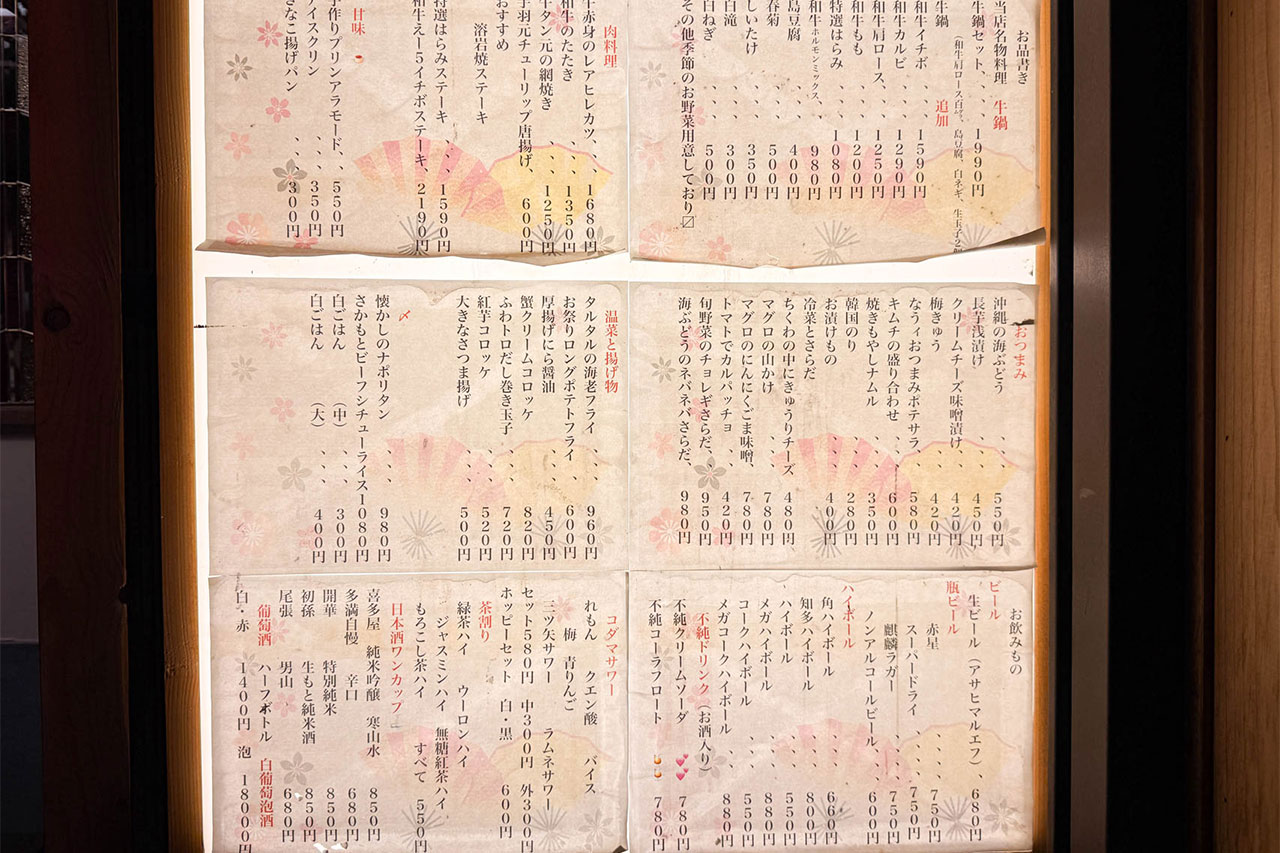 お品書き
当店名物料理 牛鍋
牛鍋セット、、、1990円
(和牛肩ロース百㌘、島豆腐、白ネギ、生玉子2個
牛鍋 追加
和牛イチボ 、、、1590円
和牛カルビ 、、、1290円
和牛肩ロース、、、1250円
和牛もも 、、、1200円
特選はらみ 、、、1080円
和牛ホルモンミックス、 980円
島豆腐 、、、400円
春菊 、、、500円
しいたけ 、、、350円
白滝 、、、300円
白ねぎ 、、、500円
その他季節のお野菜用意しており〼
肉料理
牛赤身のレアヒレカツ、、、1680円
和牛のたたき 、、、1350円
牛タン元の網焼き 、、、1250円
手羽元チューリップ唐揚げ、 600円
おすすめ
溶岩焼ステーキ
特選はらみステーキ 、、、1590円
和牛えー5イチボステーキ、2190円
甘味
手作りプリンアラモード、、550円
アイスクリン 、、、350円
きなこ揚げパン 、、、300円
おつまみ
沖縄の海ぶどう 、、、550円
長芋浅漬け 、、、450円
クリームチーズ味噌漬け 、、、420円
梅きゅう 、、、420円
なうぃおつまみポテサラ、、、580円
キムチの盛り合わせ 、、、600円
焼きもやしナムル 、、、350円
韓国のり 、、、280円
お漬けもの 、、、400円
冷菜とさらだ
ちくわの中にきゅうりチーズ 480円
マグロの山かけ 、、、780円
マグロのにんにくごま味噌、 780円
トマトでカルパッチョ 、、420円
旬野菜のチョレギさらだ、 950円
海ぶどうのネバネバさらだ、 980円
温菜と揚げ物
タルタルの海老フライ 、、、960円
お祭りロングポテトフライ 、、600円
厚揚げにら醤油 、、、450円
蟹クリームコロッケ 、、、820円
ふわトロだし巻き玉子 、、、720円
紅芋コロッケ 、、、520円
大きなさつま揚げ 、、、500円
〆
懐かしのナポリタン 、、、980円
さかもとビーフシチューライス1080円
白ごはん (中) 、、、300円
白ごはん (大) 、、、400円
お飲みもの
ビール
生ビール(アサヒマルエフ)、、680円
瓶ビール
赤星 、、、、750円
スーパードライ 、、、、750円
麒麟ラガー 、、、、750円
ノンアルコールビール、、、600円
ハイボール
角ハイボール 、、、660円
知多ハイボール 、、、880円
ハイボール 、、、550円
メガハイボール 、、、880円
コークハイボール 、、、550円
メガコークハイボール 、、880円
不純ドリンク(お酒入り)
不純クリームソーダ 💕 780円
不純コーラフロート 780円
コダマサワー
れもん クエン酸 バイス
梅 青りんご
三ツ矢サワー ラムネサワー
セット580円 中300円 外300円
ホッピーセット 白・黒 600円
茶割り
緑茶ハイ ウーロンハイ
ジャスミンハイ 無糖紅茶ハイ
もろこし茶ハイ すべて 550円
日本酒ワンカップ
喜多屋 純米吟醸 寒山水 850円
多満自慢 辛口 680円
開華 特別純米 850円
初孫 生もと純米酒 850円
尾張 男山 680円
葡萄酒 ハーフボトル 白葡萄泡酒
白・赤 1400円 泡 1800円